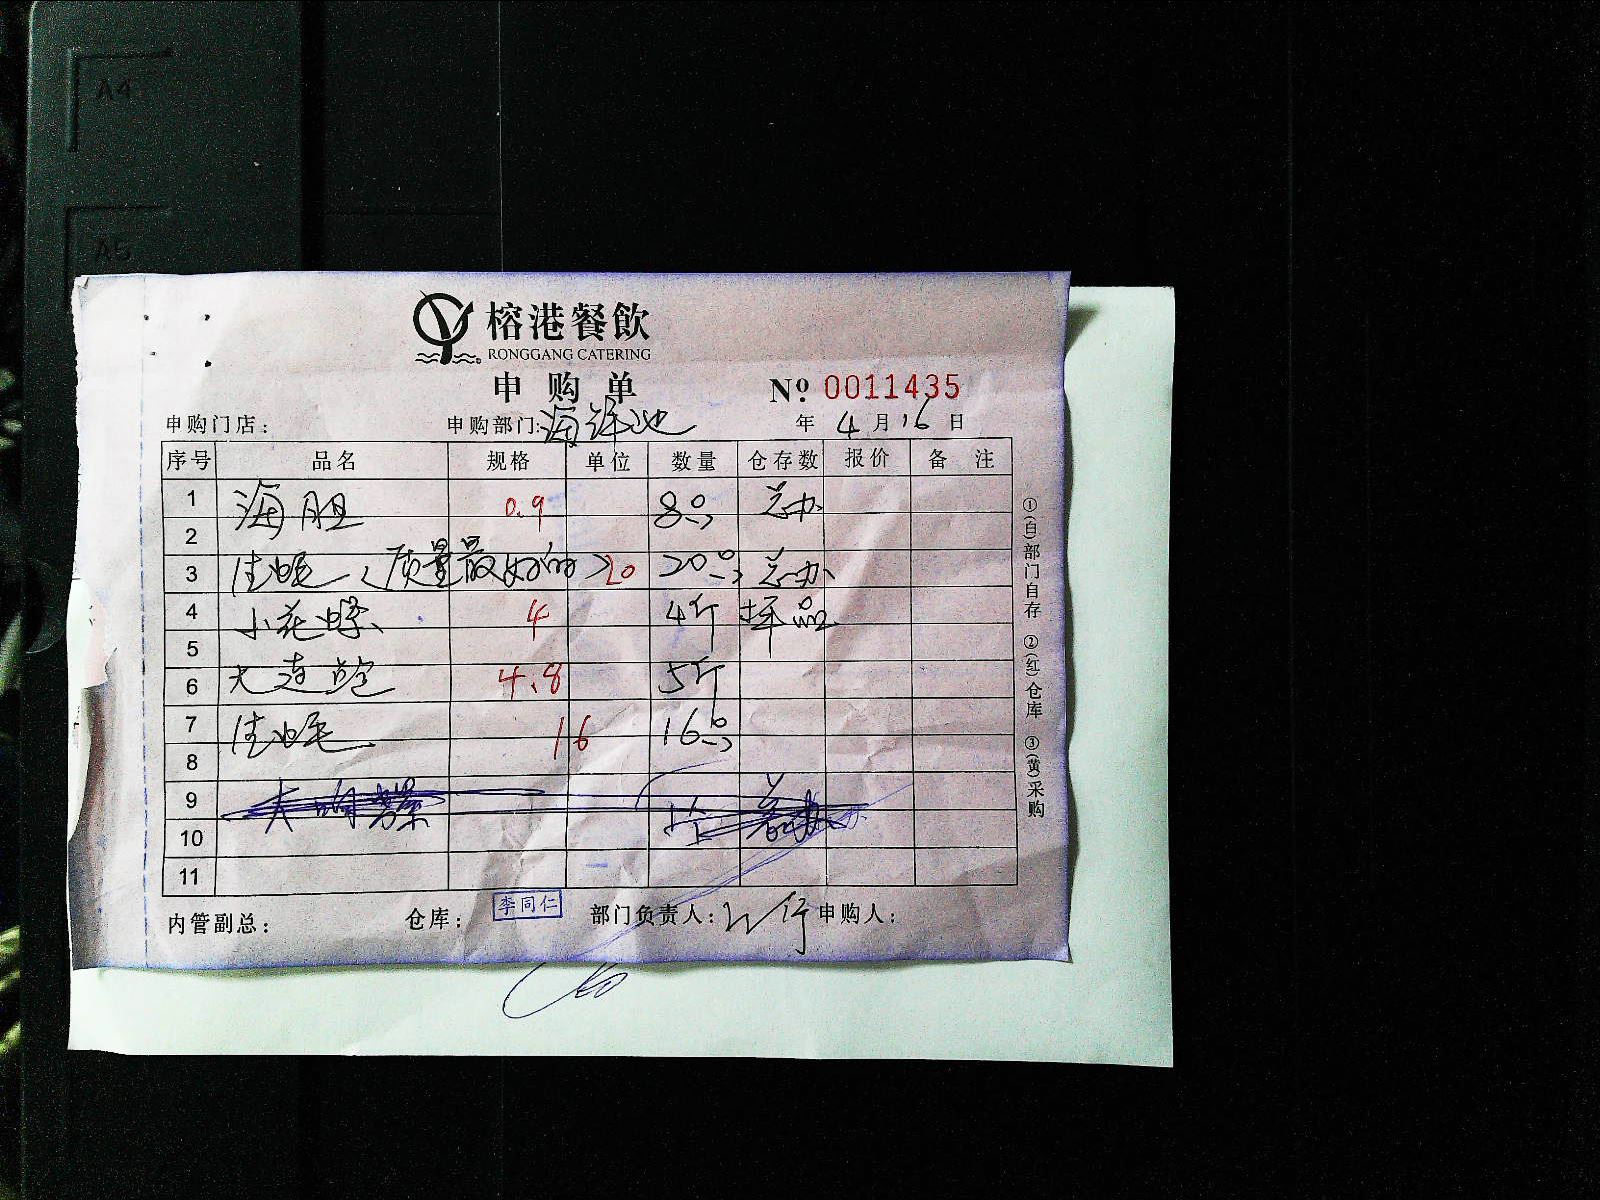 A4
A5
榕港餐飲
RONGGANG CATERING
申购单 Nº. 0011435
申购门店： 申购部门：海鲜池 年 4 月 16 日
序号 品名 规格 单位 数量 仓存数 报价 备 注
1 海胆 0.9 8只 总办
2
3 (质量最好的) 20 20只 总办
4 小花螺 4 4斤
5
6 大连鲍 4.8 5斤
7 16 16只
8
9
10
11
①(白)部门自存 ②(红)仓库 ③(黄)采购
内管副总： 仓库： 李同仁 部门负责人： 申购人：